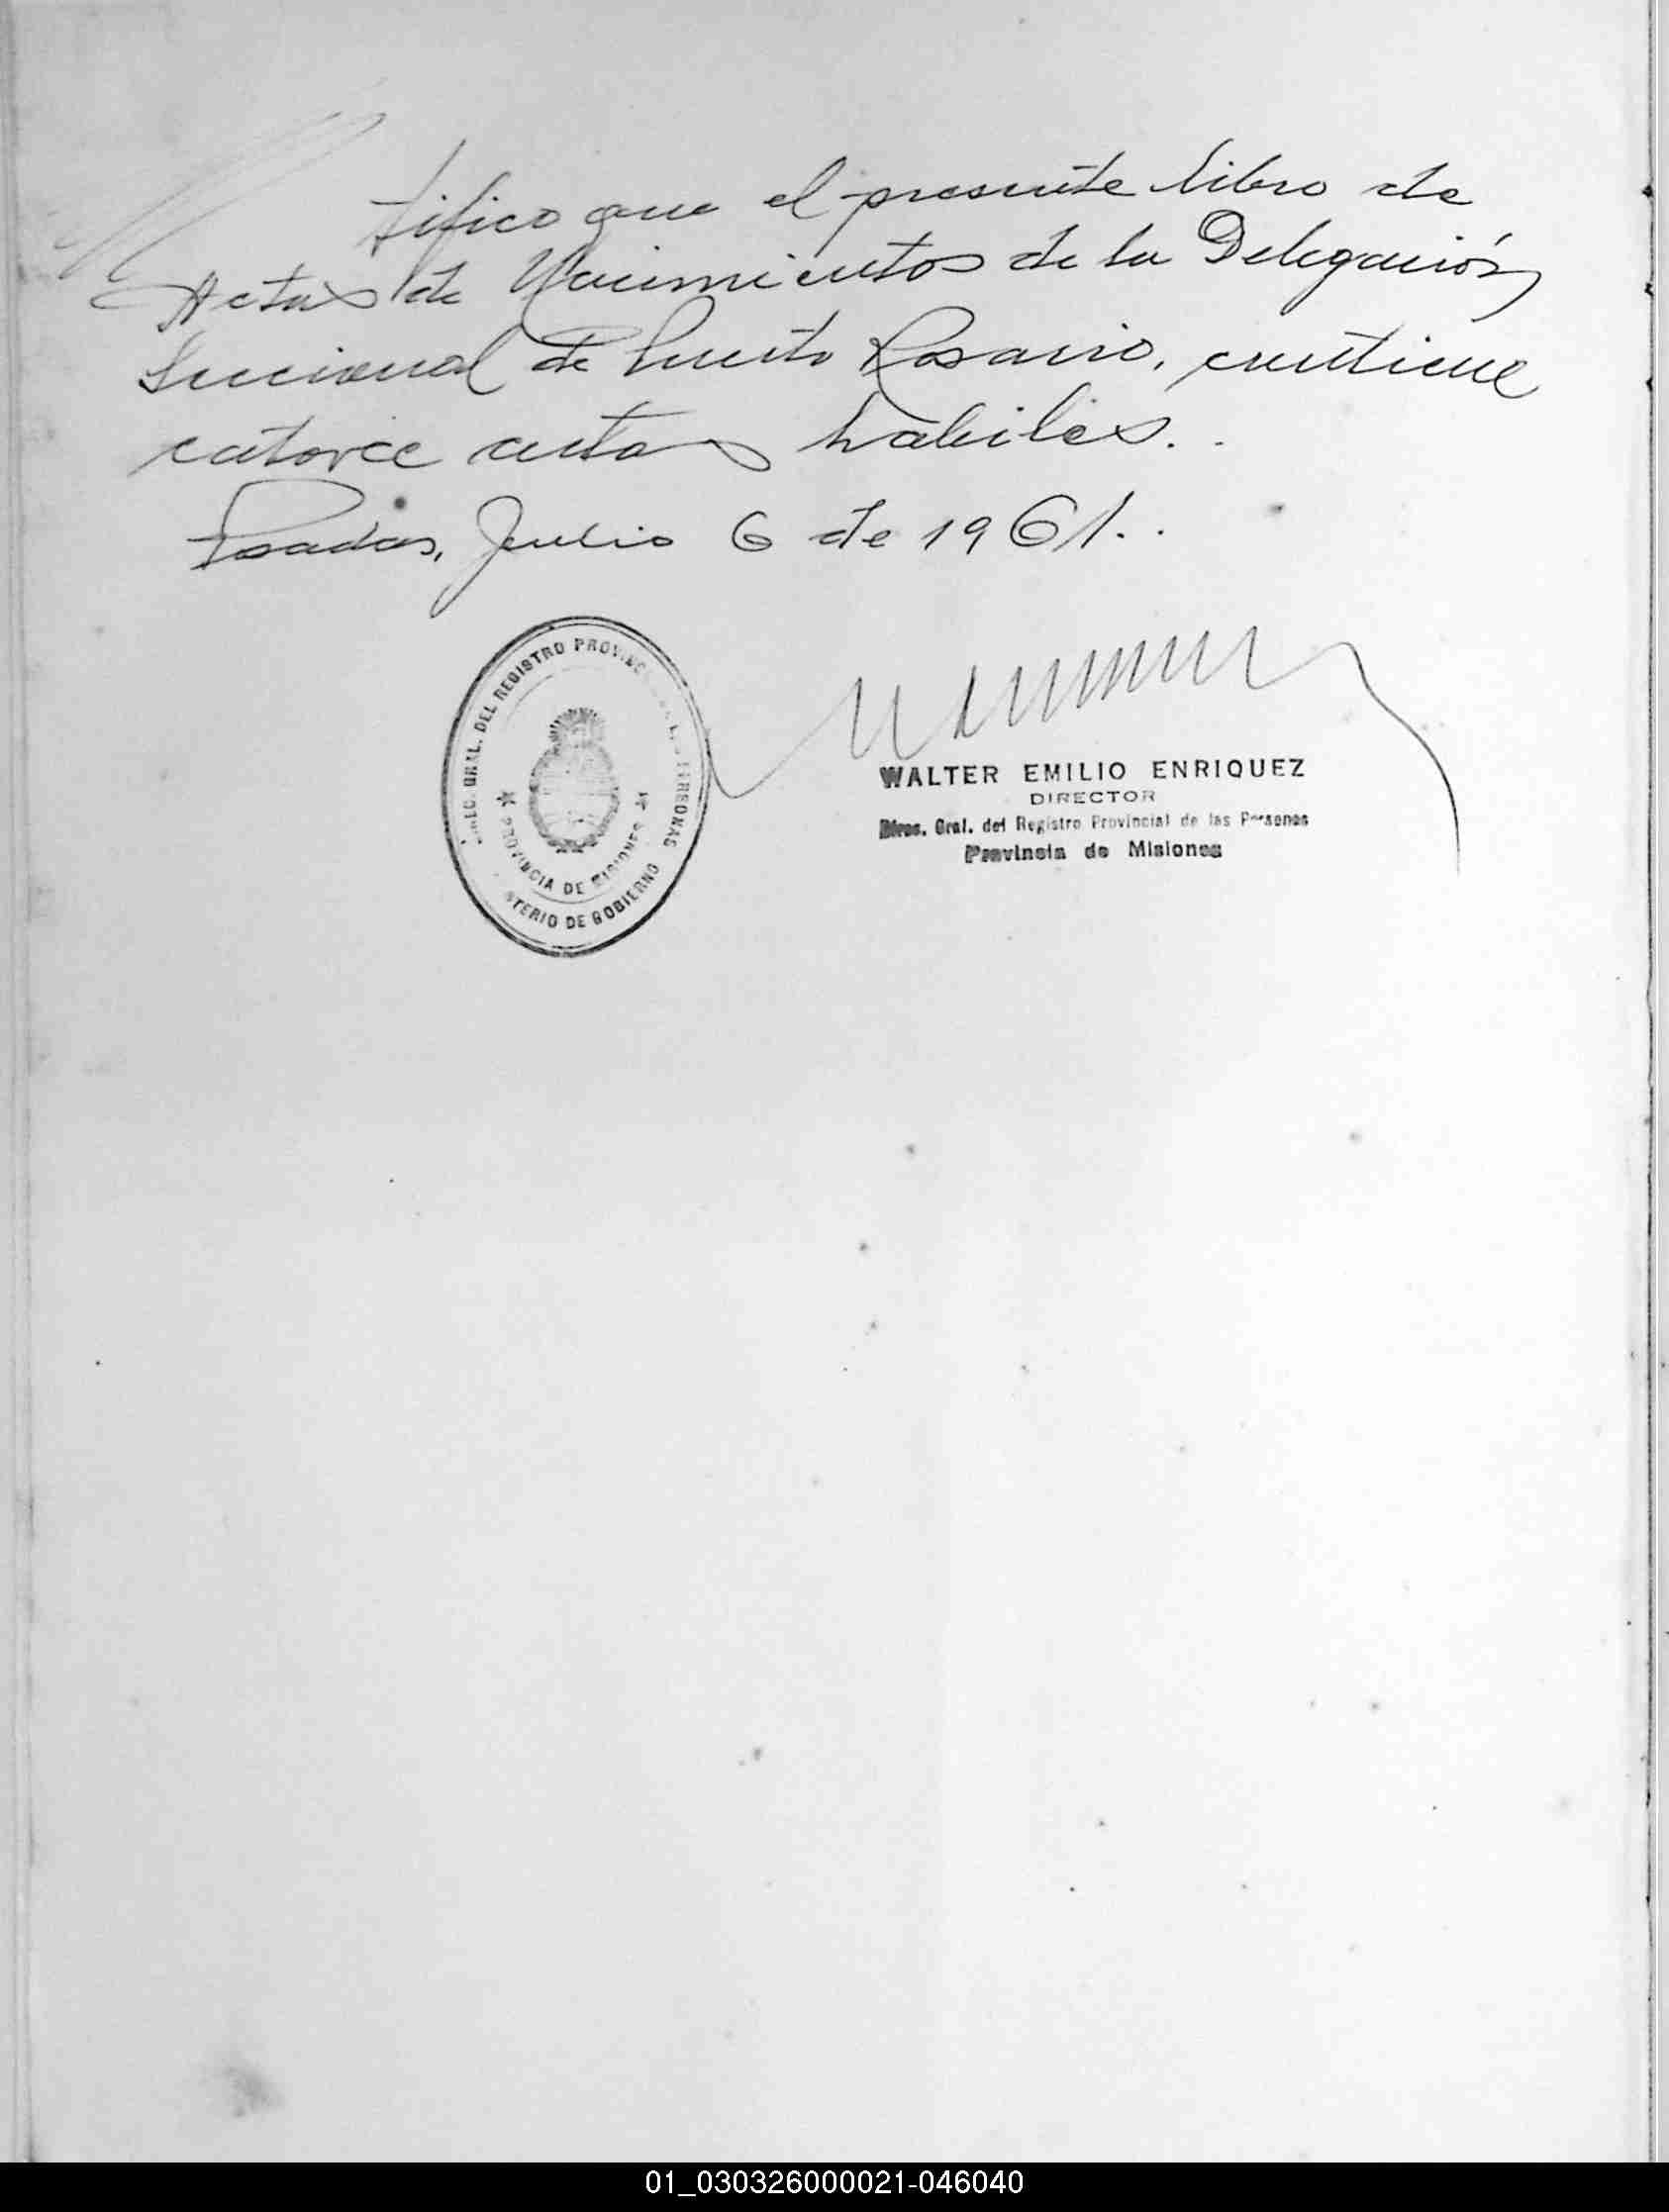 tifico que el presente libro de
Actas de Nacimientos de la Delegación
Seccional de Puerto Rosario, contiene
catorce actas habiles..
Posadas, Julio 6 de 1961..
DIREC. GRAL. DEL REGISTRO PROVINC PERSONAS
★ PROVINCIA DE MISIONES ★
STERIO DE GOBIERNO
WALTER EMILIO ENRIQUEZ
DIRECTOR
Direc. Gral. del Registro Provincial de las Personas
Provincia de Misiones
01_030326000021-046040